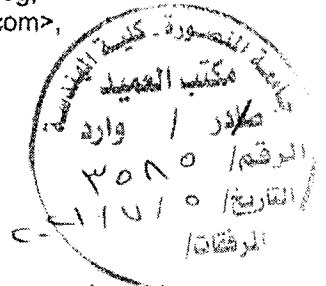 com>,
جامعة المنصورة - كلية الهندسة
مكتب العميد
صادر / وارد
الرقم/ ٣٥٨٥
التاريخ/ ٥ / ٧ /
المرفقات/